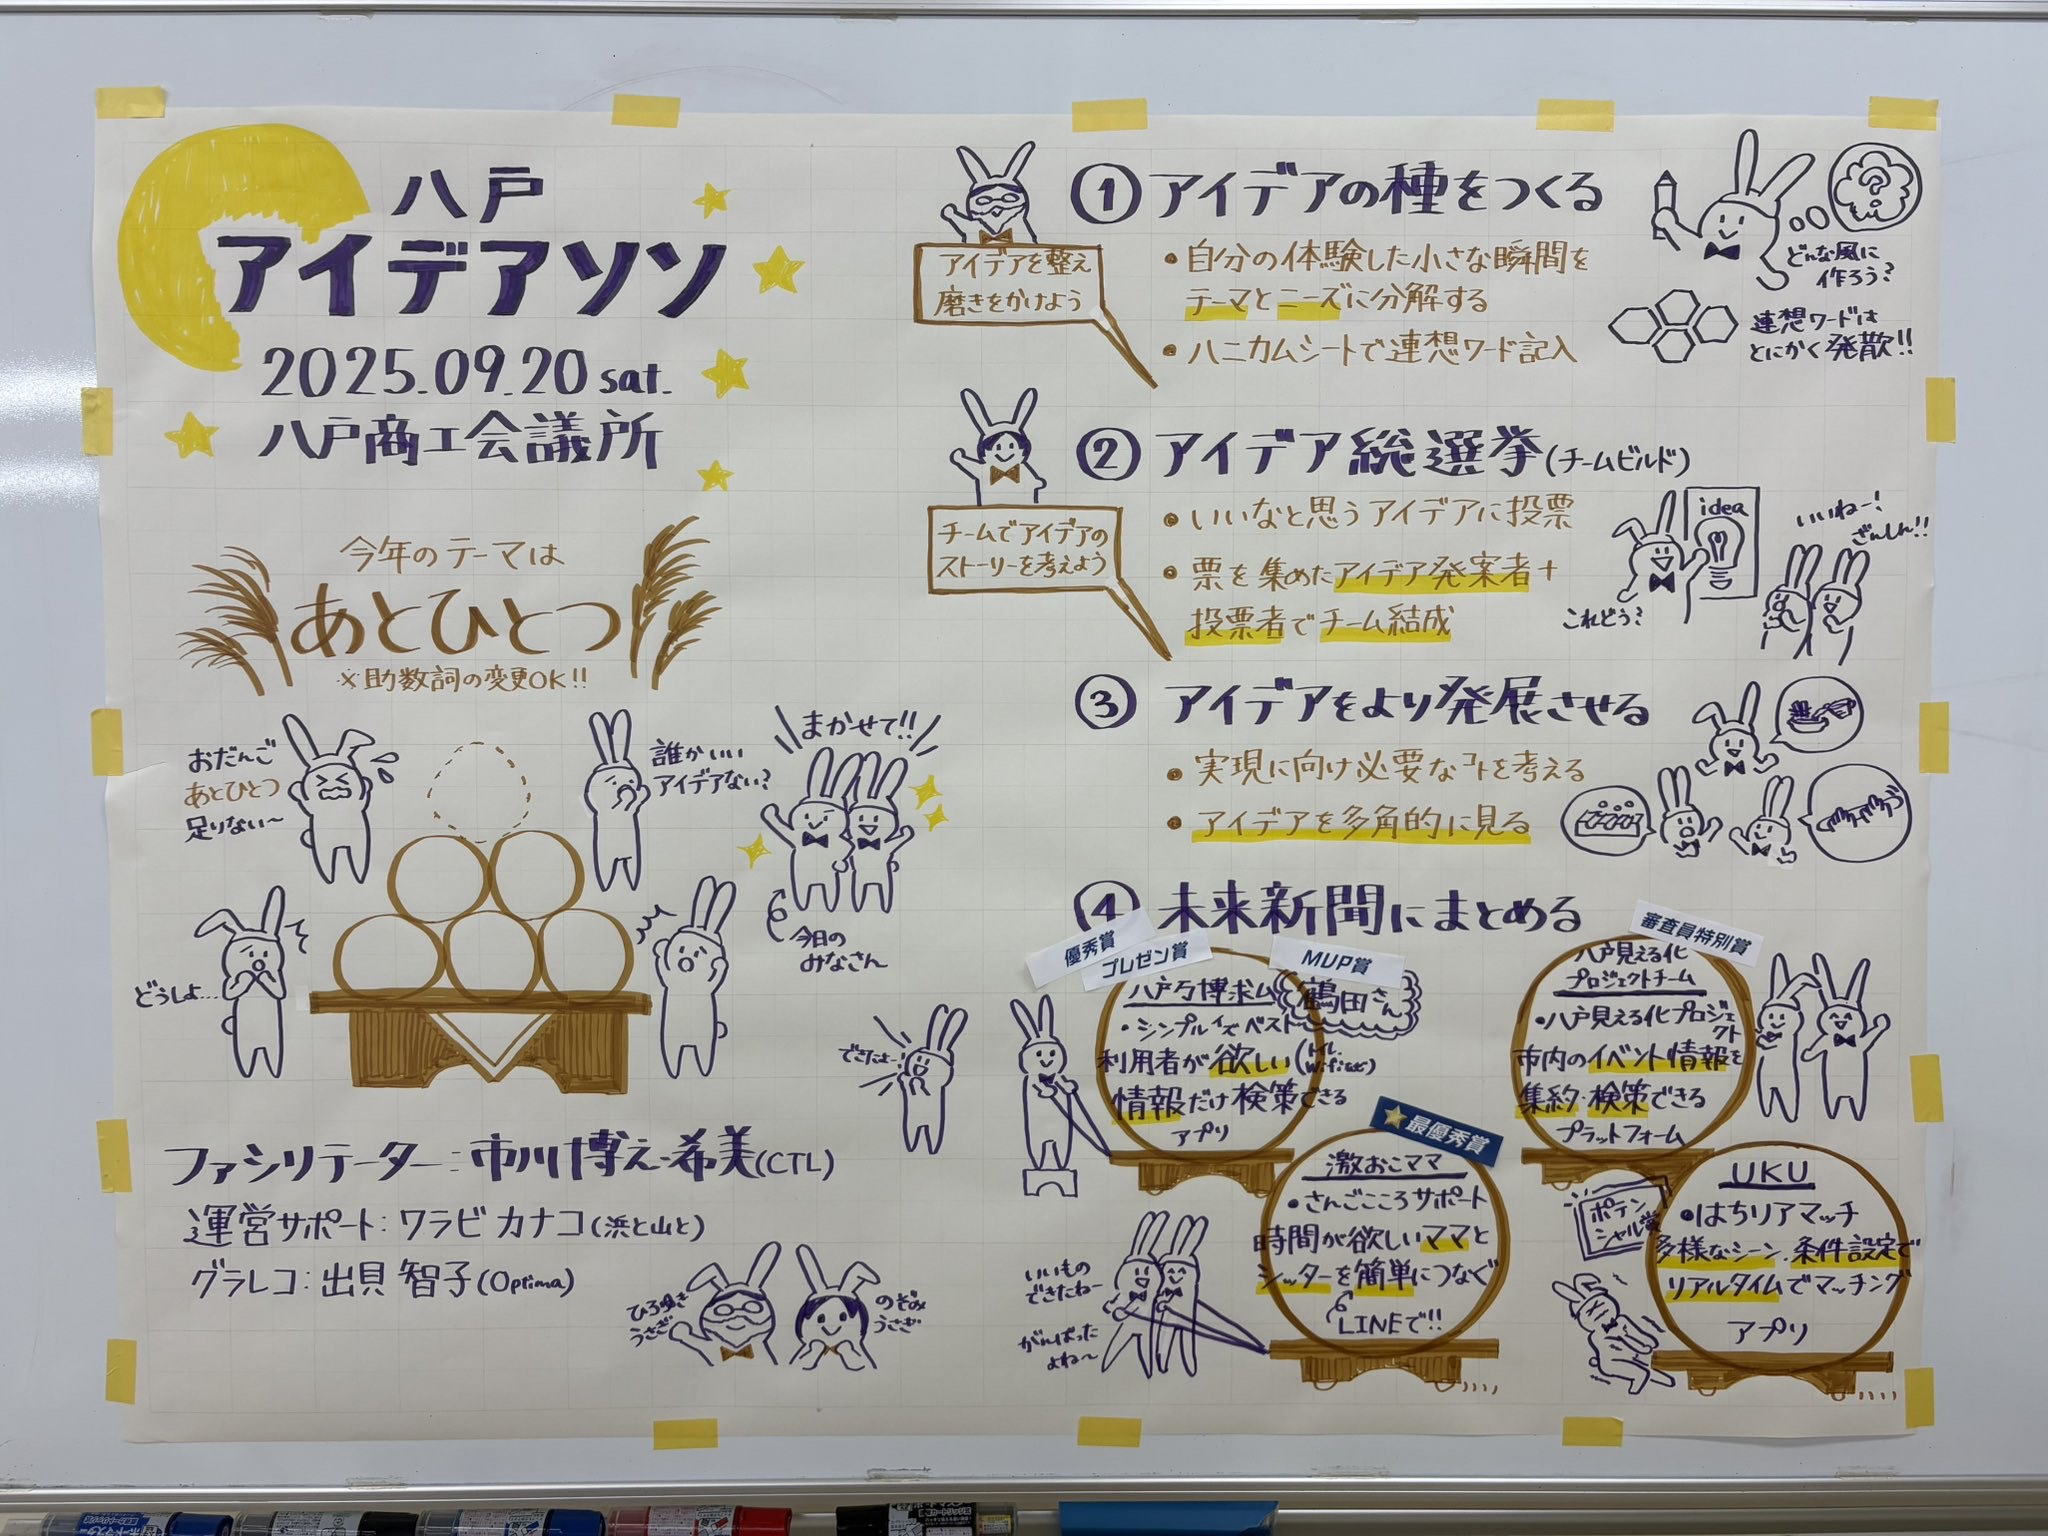 八戸
アイデアソン
2025.09.20 sat.
八戸商工会議所
今年のテーマは
あとひとつ
※助数詞の変更OK!!
おだんご
あとひとつ
足りない~
誰かいい
アイデアない?
まかせて!!
今日の
みなさん
どうしよ…
ファシリテーター:市川博之・希美(CTL)
運営サポート:ワラビ カナコ(浜と山と)
グラレコ:出貝 智子(Optima)
ひろゆき
うさぎ
のぞみ
うさぎ
アイデアを整え
磨きをかけよう
① アイデアの種をつくる
・自分の体験した小さな瞬間を
テーマとニーズに分解する
・ハニカムシートで連想ワード記入
どんな風に
作ろう?
連想ワードは
とにかく発散!!
チームでアイデアの
ストーリーを考えよう
② アイデア総選挙(チームビルド)
・いいなと思うアイデアに投票
・票を集めたアイデア発案者+
投票者でチーム結成
idea
これどう?
いいねー!
ざんしん!!
③ アイデアをより発展させる
・実現に向け必要なコトを考える
・アイデアを多角的に見る
④ 未来新聞にまとめる
優秀賞
プレゼン賞
MVP賞
鶴田さん
八戸万博求ム
・シンプルイズベスト
利用者が欲しい(トイレ、Wi-Fi etc)
情報だけ検策できる
アプリ
できたよー
審査員特別賞
八戸見える化
プロジェクトチーム
・八戸見える化プロジェクト
市内のイベント情報を
集約・検策できる
プラットフォーム
最優秀賞
激おこママ
・さんごこころサポート
時間が欲しいママと
シッターを簡単につなぐ
LINEで!!
いいもの
できたねー
がんばった
よね~
ポテン
シャル賞
UKU
・はちリアマッチ
多様なシーン、条件設定で
リアルタイムでマッチング
アプリ